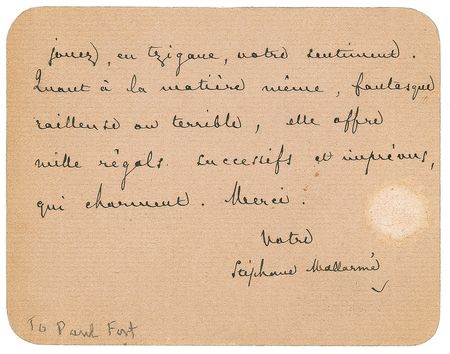 jouez, en tzigane, votre sentiment.
Quant à la matière même, fantasque
railleuse ou terrible, elle offre
mille régals successifs et imprévus,
qui charment. Merci.
Votre
Stéphane Mallarmé
To Paul Fort